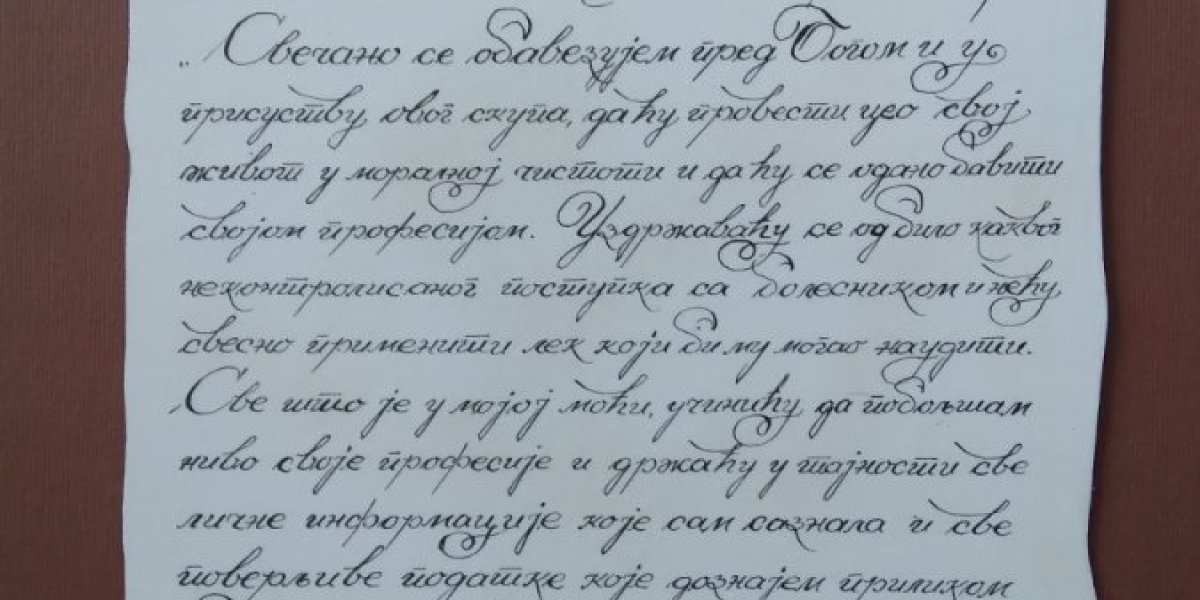 „Свечано се обавезујем пред Богом и у
присуству овог скупа, да ћу провести цео свој
живот у моралној чистоти и да ћу се одано бавити
својом професијом. Уздржаваћу се од било каквог
неконтролисаног поступка са болесником и нећу
свесно применити лек који би му могао наудити.
Све што је у мојој моћи, учинићу да побољшам
ниво своје професије и држаћу у тајности све
личне информације које сам сазнала и све
поверљиве податке које дознајем приликом